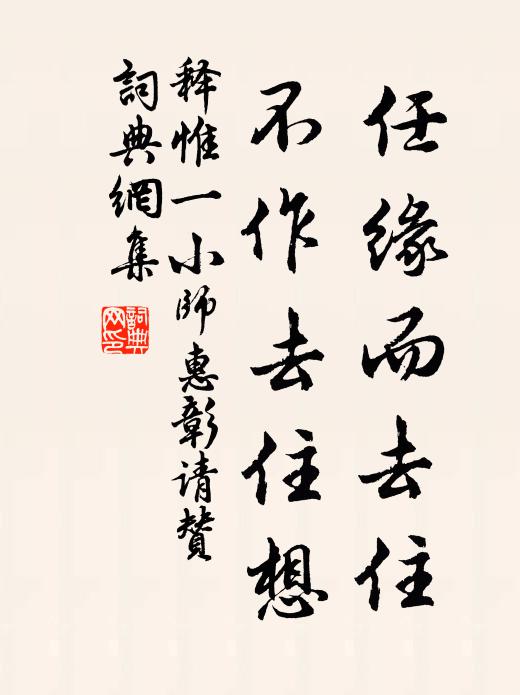 任缘而去住
不作去住想
释惟一小师惠彰请赞
詞典網集
詞典网印